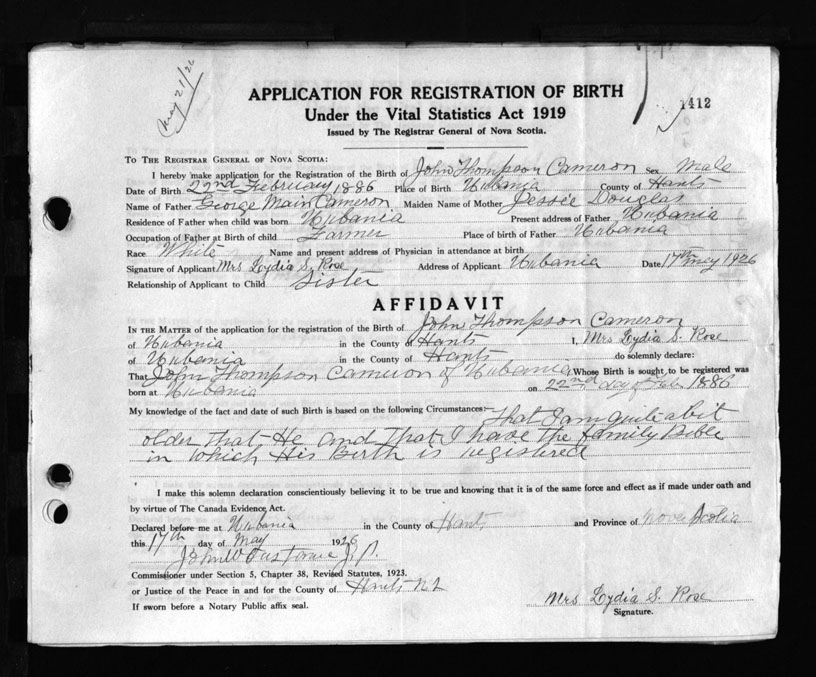 May 21/26
APPLICATION FOR REGISTRATION OF BIRTH
1412
Under the Vital Statistics Act 1919
Issued by The Registrar General of Nova Scotia.
TO THE REGISTRAR GENERAL OF NOVA SCOTIA:
I hereby make application for the Registration of the Birth of John Thompson Cameron Sex Male
Date of Birth 22nd February 1886 Place of Birth Urbania County of Hants
Name of Father George Main Cameron Maiden Name of Mother Jessie Douglas
Residence of Father when child was born Urbania Present address of Father Urbania
Occupation of Father at Birth of child Farmer Place of birth of Father Urbania
Race White Name and present address of Physician in attendance at birth
Signature of Applicant Mrs Lydia S. Rose Address of Applicant Urbania Date 17th May 1926
Relationship of Applicant to Child Sister
AFFIDAVIT
IN THE MATTER of the application for the registration of the Birth of John Thompson Cameron
of Urbania in the County of Hants I, Mrs Lydia S. Rose
of Urbania in the County of Hants do solemnly declare:
That John Thompson Cameron of Urbania Whose Birth is sought to be registered was
born at Urbania on 22nd day of Feb 1886
My knowledge of the fact and date of such Birth is based on the following Circumstances:- That I am quite a bit
older that He and that I have the family Bible
in which His Birth is registered
I make this solemn declaration conscientiously believing it to be true and knowing that it is of the same force and effect as if made under oath and
by virtue of The Canada Evidence Act.
Declared before me at Urbania in the County of Hants and Province of Nova Scotia
this 17th day of May 1926
John W J.P.
Commissioner under Section 5, Chapter 38, Revised Statutes, 1923.
or Justice of the Peace in and for the County of Hants N.S
If sworn before a Notary Public affix seal.
Mrs Lydia S. Rose
Signature.